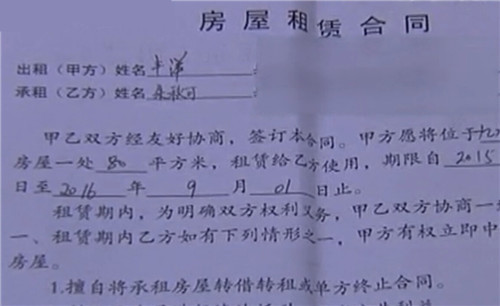 房屋租赁合同
出租（甲方）姓名
承租（乙方）姓名
甲乙双方经友好协商，签订本合同。甲方愿将位于
房屋一处 80 平方米，租赁给乙方使用，期限自 2015
日至 2016 年 9 月 01 日止。
租赁期内，为明确双方权利义务，甲乙双方协商一
一、租赁期内乙方如有下列情形之一，甲方有权立即中
房屋。
1.擅自将承租房屋转借转租或单方终止合同。